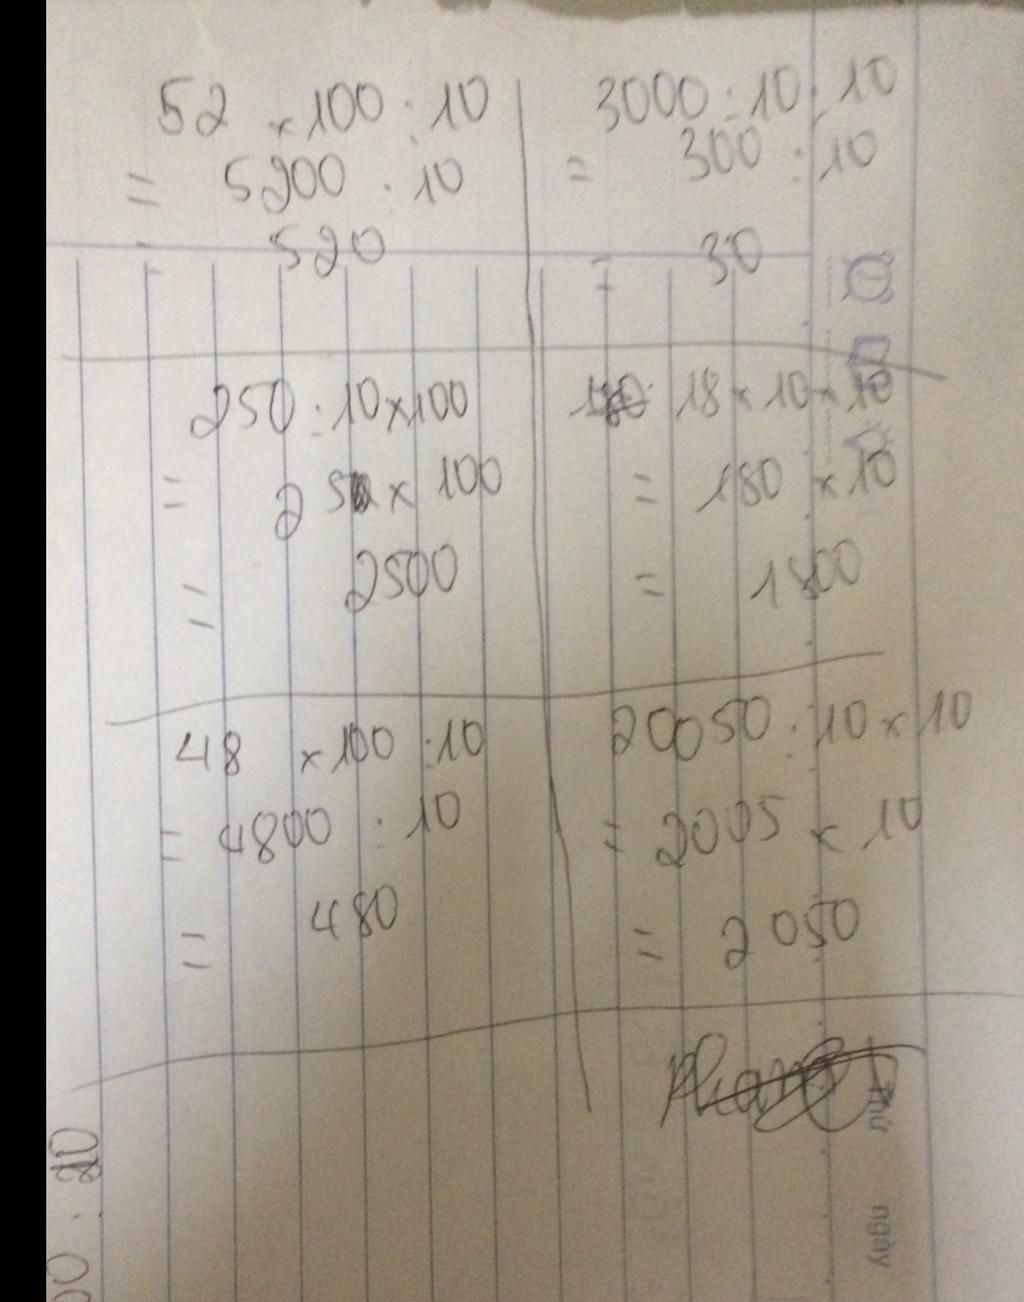 52 × 100 : 10
= 5200 : 10
= 520
3000 : 10 : 10
= 300 : 10
= 30
250 : 10 × 100
= 25 × 100
= 2500
18 × 10 × 10
= 180 × 10
= 1800
48 × 100 : 10
= 4800 : 10
= 480
20050 : 10 × 10
= 2005 × 10
= 2050
Thứ
ngày
00 : 20